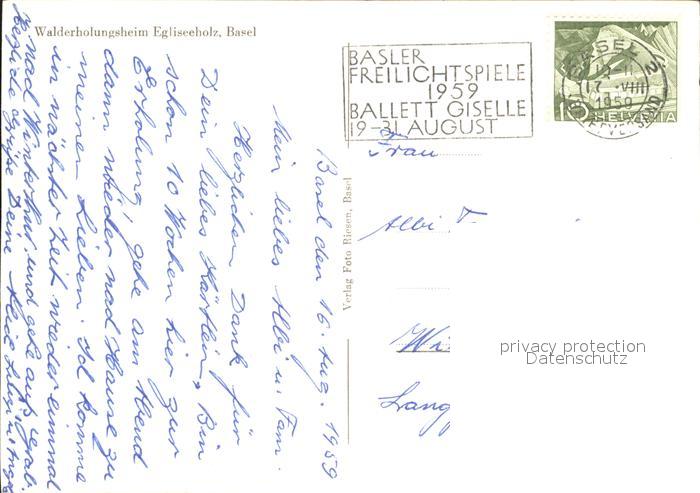 Walderholungsheim Egliseeholz, Basel
BASLER
FREILICHTSPIELE
1959
BALLETT GISELLE
19-31 AUGUST
BASEL 2
17. VIII
1959
BRIEFVERSAND
10 HELVETIA
Verlag Foto Riesen, Basel
Frau
Albi T
Wi
Lang
privacy protection
Datenschutz
Basel den 16. Aug. 1959
Mein liebes Albi u. Fam.
Herzlichen Dank für
Dein liebes Kärtlein, Bin
schon 10 Wochen hier zur
Erholung, gehe am Abend
dann wieder nach Hause zu
meinen Lieben. Ich komme
in nächster Zeit wieder einmal
nach Winterthur und gehe auf
Herzliche Grüsse Deine